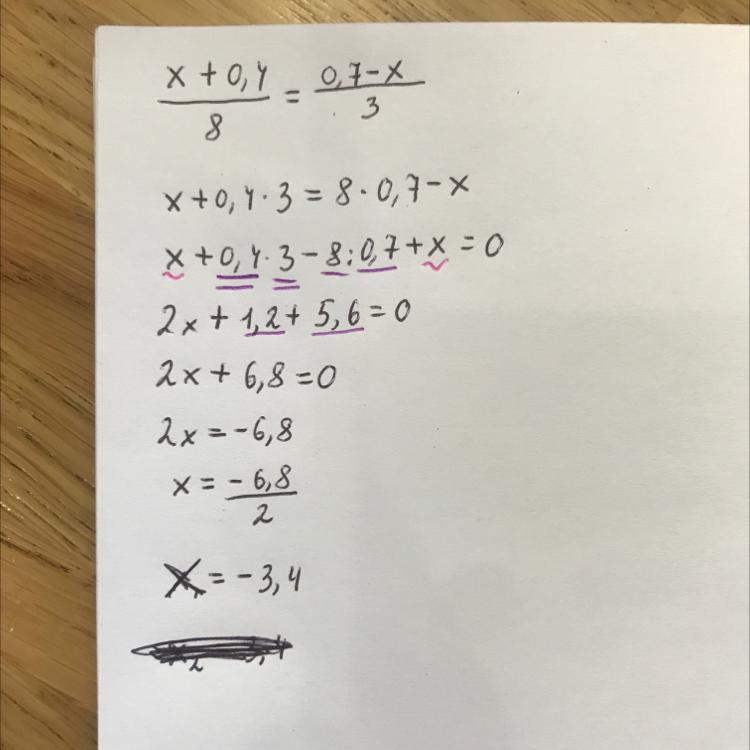 x + 0,4 / 8 = 0,7 - x / 3
x + 0,4 · 3 = 8 · 0,7 - x
x + 0,4 · 3 - 8 : 0,7 + x = 0
2x + 1,2 + 5,6 = 0
2x + 6,8 = 0
2x = -6,8
x = -6,8 / 2
x = -3,4